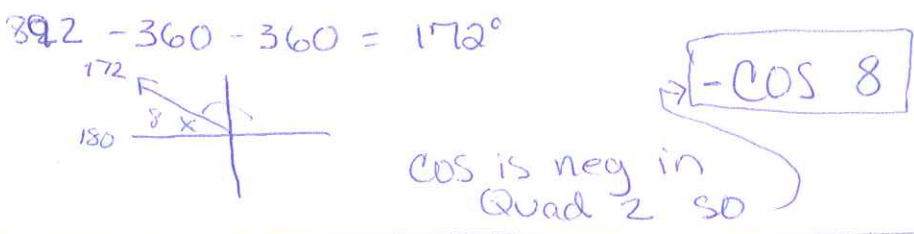 892 - 360 - 360 = 172°
172
8 x
180
-COS 8
COS is neg in
Quad 2 so